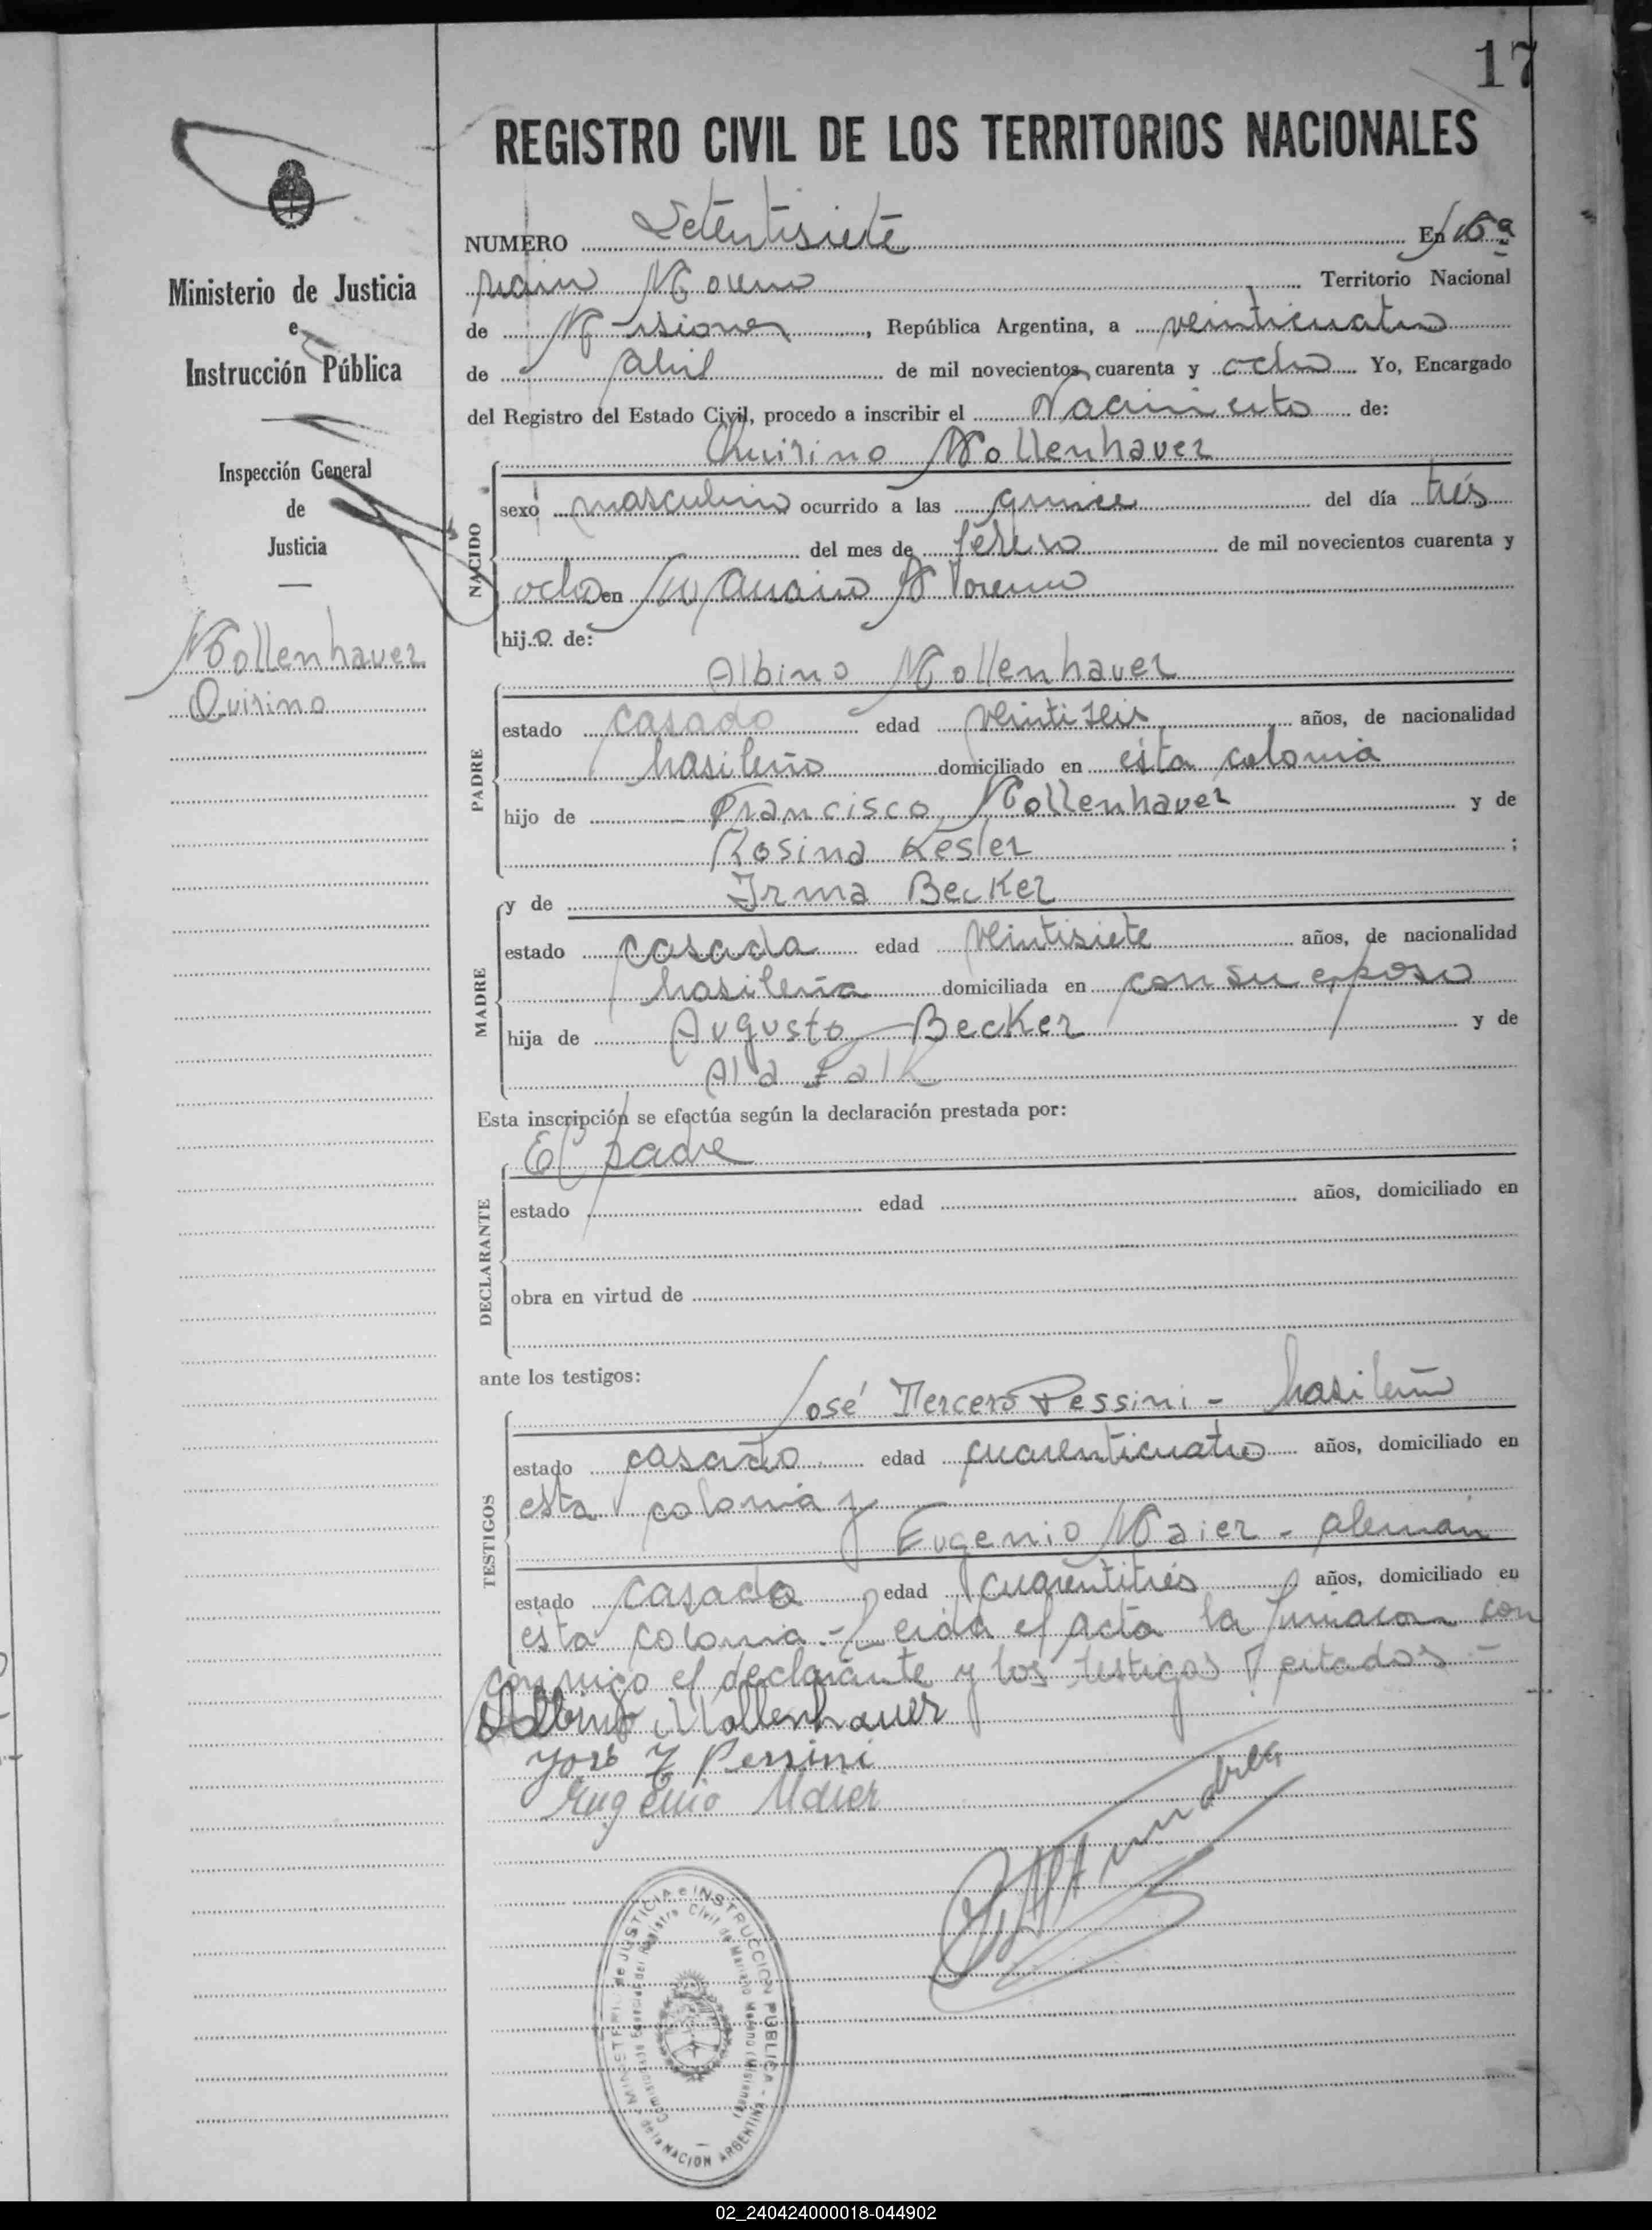 17
REGISTRO CIVIL DE LOS TERRITORIOS NACIONALES
NUMERO Setentisiete En Ma
riano Moreno Territorio Nacional
de Misiones, República Argentina, a veinticuatro
de abril de mil novecientos cuarenta y ocho Yo, Encargado
del Registro del Estado Civil, procedo a inscribir el Nacimiento de:
Quirino Mollenhauer
NACIDO
sexo masculino ocurrido a las quince del día trés
del mes de febrero de mil novecientos cuarenta y
ocho en Mariano Moreno
hijo de:
PADRE
Albino Mollenhauer
estado casado edad veintiseis años, de nacionalidad
brasileño domiciliado en esta colonia
hijo de Francisco Mollenhauer y de
Rosina Kesler ;
MADRE
y de Irma Becker
estado casada edad veintisiete años, de nacionalidad
brasileña domiciliada en con su esposo
hija de Augusto Becker y de
Alda Falk
Esta inscripción se efectúa según la declaración prestada por:
DECLARANTE
El padre
estado edad años, domiciliado en
obra en virtud de
ante los testigos:
TESTIGOS
José Tercero Pessini - brasileño
estado casado edad cuarenticuatro años, domiciliado en
esta colonia y
Eugenio Maier - aleman
estado casado edad cuarentitrés años, domiciliado en
esta colonia.- Leida el acta la firmaron con
conmigo el declarante y los testigos citados -
Albino Mollenhauer
José T Pessini
Eugenio Maier
MINISTERIO de JUSTICIA e INSTRUCCION PUBLICA -
de la NACION ARGENTINA
Registro Civil de Mariano Moreno (Misiones)
Ministerio de Justicia
e
Instrucción Pública
Inspección General
de
Justicia
Mollenhauer
Quirino
02_240424000018-044902